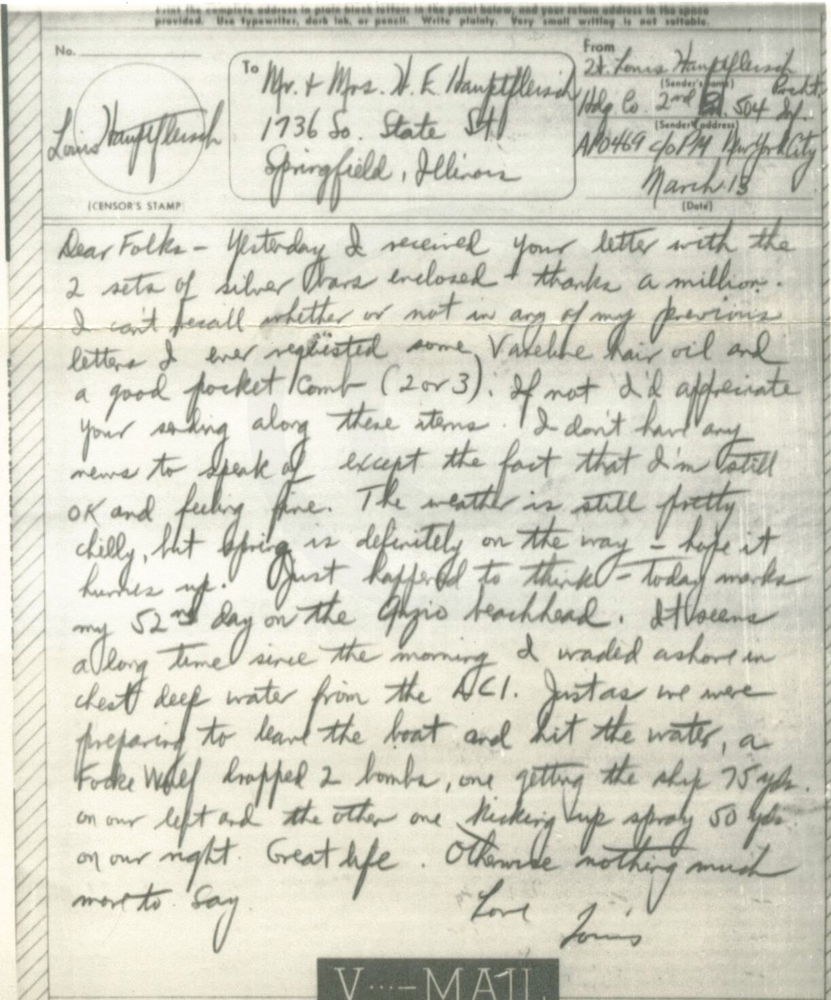 Print the complete address in plain block letters in the panel below, and your return address in the space
provided. Use typewriter, dark ink, or pencil. Write plainly. Very small writing is not suitable.
No.
Louis Hauptfleisch
(CENSOR'S STAMP)
To
Mr. + Mrs. W. E. Hauptfleisch
1736 So. State St.
Springfield, Illinois
From
Lt. Louis Hauptfleisch
(Sender's name)
Hdq Co. 2nd Bn. 504 Prcht. Inf.
(Sender's address)
APO 469 c/o PM New York City
March 13
(Date)
Dear Folks - Yesterday I received your letter with the
2 sets of silver bars enclosed - thanks a million.
I can't recall whether or not in any of my previous
letters I ever requested some Vaseline hair oil and
a good pocket comb (2 or 3). If not I'd appreciate
your sending along these items. I don't have any
news to speak of except the fact that I'm still
OK and feeling fine. The weather is still pretty
chilly, but spring is definitely on the way - hope it
hurries up. Just happened to think - today marks
my 52nd day on the Anzio beachhead. It seems
a long time since the morning I waded ashore in
chest deep water from the LCI. Just as we were
preparing to leave the boat and hit the water, a
Focke Wulf dropped 2 bombs, one getting the ship 75 yds.
on our left and the other one kicking up spray 50 yds.
on our right. Great life. Otherwise nothing much
more to say.
Love
Louis
V···—MAIL